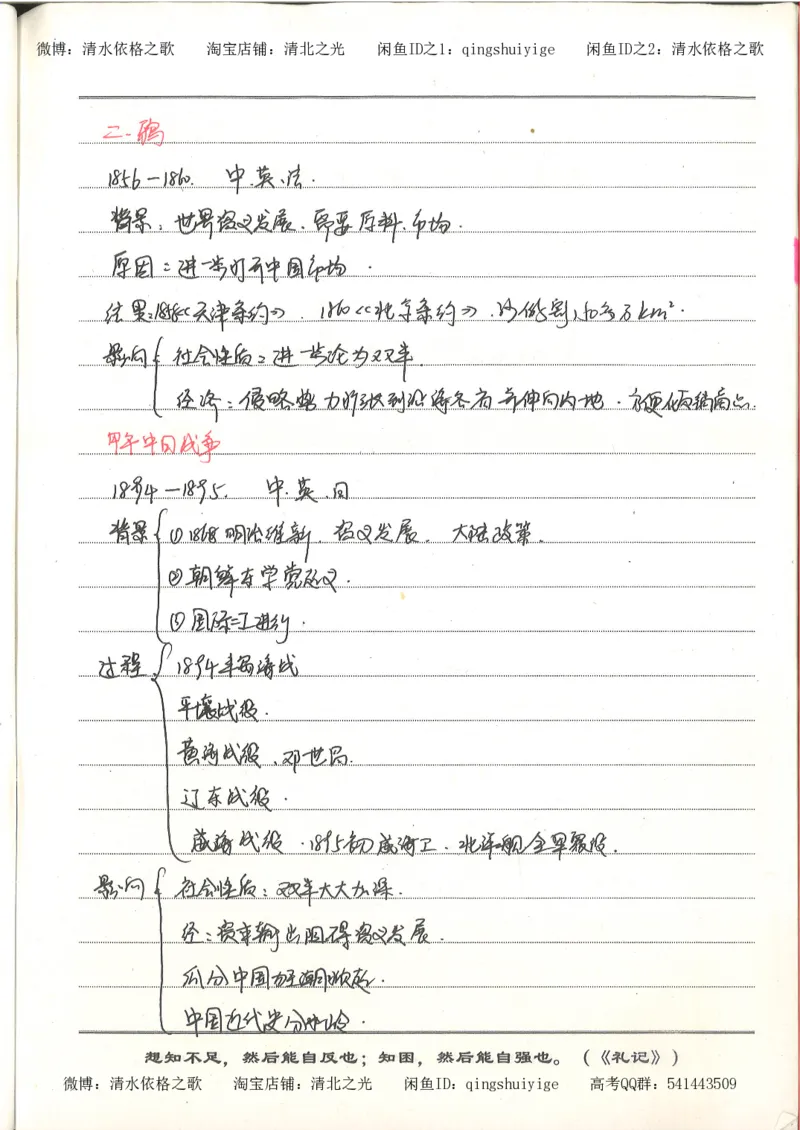 微博：清水依格之歌 淘宝店铺：清北之光 闲鱼ID之1：qingshuiyige 闲鱼ID之2：清水依格之歌
二.鸦
1856—1860. 中.英.法.
背景：世界资义发展.需要原料.市场.
原因：进一步打开中国市场.
结果:1858《天津条约》.1860《北京条约》.沙俄割150多万km².
影响{社会性质：进一步沦为双半.
经济：侵略势力扩张到沿海各省并伸向内地.方便倾销商品.
甲午中日战争
1894—1895. 中.英.日
背景{①1868明治维新.资义发展. 大陆政策.
②朝鲜东学党起义.
③国际=工进行.
过程{1894丰岛海战
平壤战役.
黄海战役.邓世昌.
辽东战役.
威海战役.1895初威海卫.北洋舰全军覆没.
影响{社会性质：双半大大加深.
经：资本输出阻碍资义发展.
瓜分中国狂潮掀起.
中国近代史分水岭.
想知不足，然后能自反也；知困，然后能自强也。（《礼记》）
微博：清水依格之歌 淘宝店铺：清北之光 闲鱼ID：qingshuiyige 高考QQ群：541443509